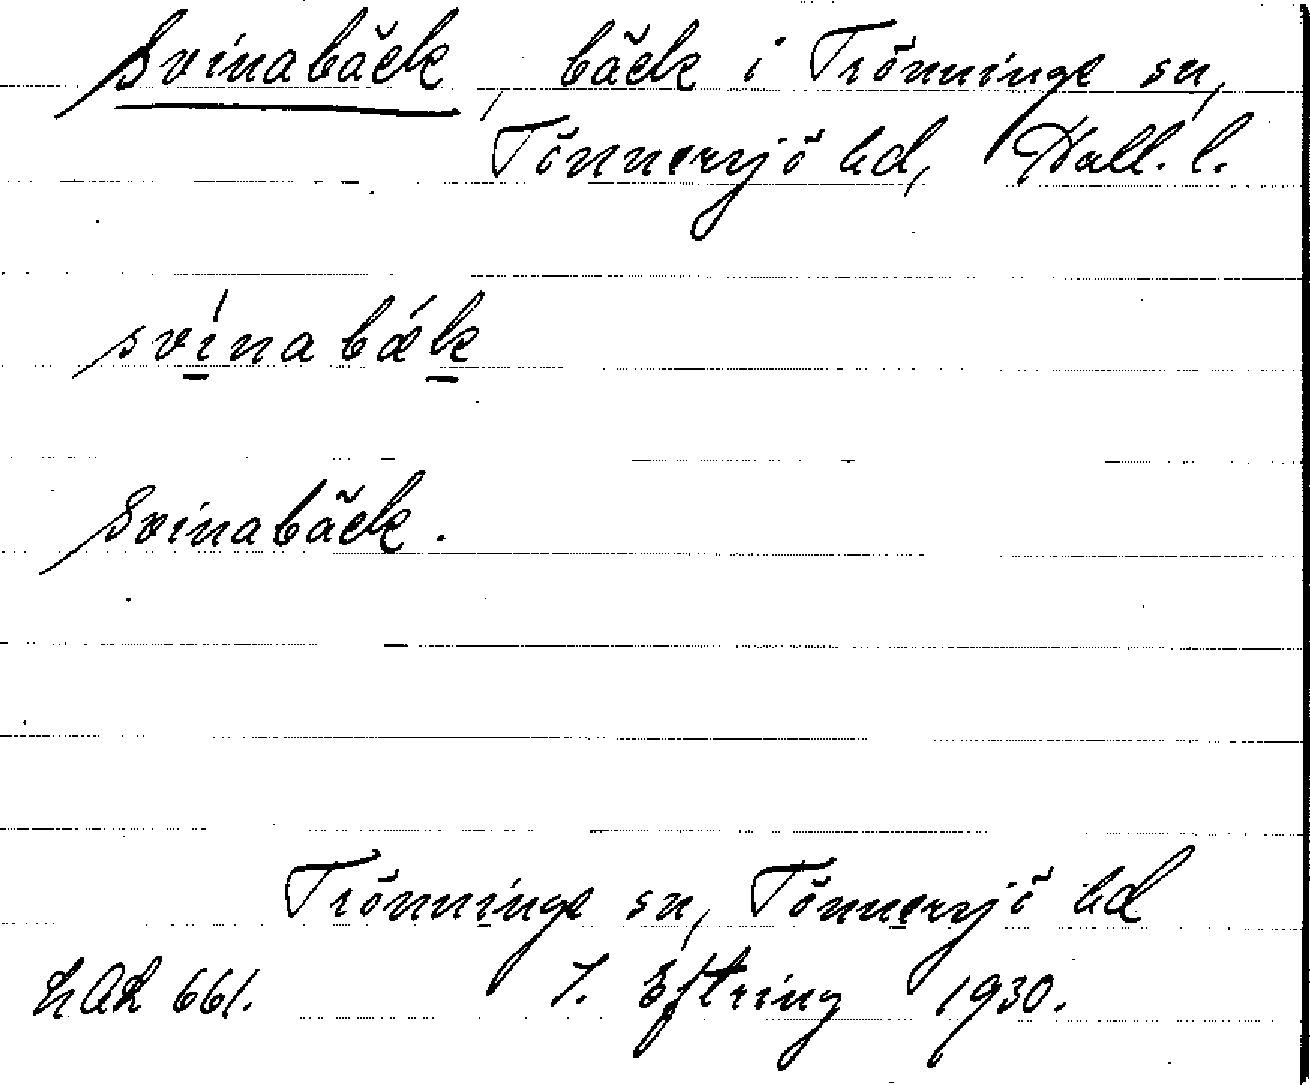 Svinabäck, bäck i Trönninge sn,
Tönnersjö hd, Hall. l.
svínabǽk
Svinabäck.
Trönninge sn, Tönnersjö hd
LAL 661. J. Eftring 1930.